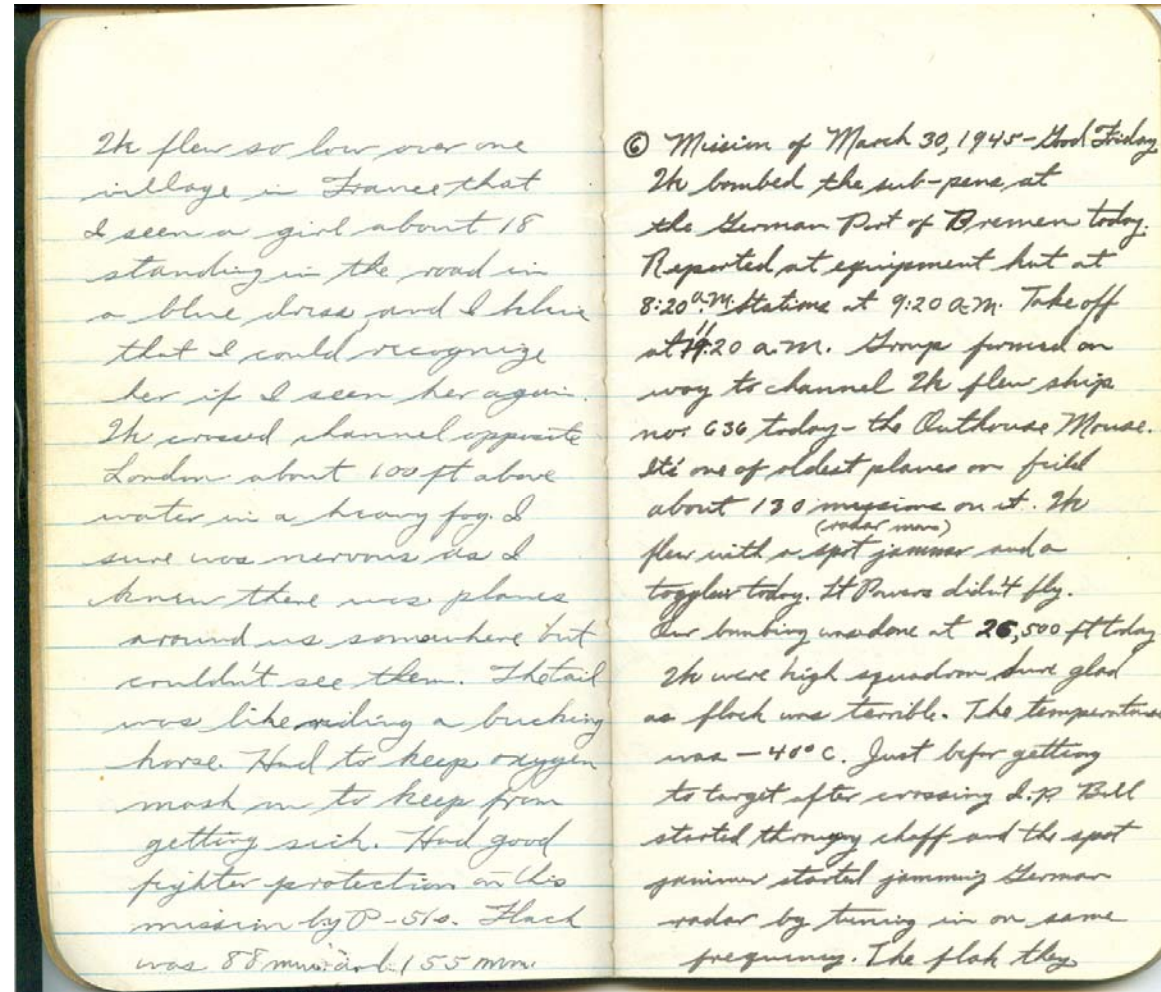 We flew so low over one
village in France that
I seen a girl about 18
standing in the road in
a blue dress, and I belive
that I could recognize
her if I seen her again.
We crossed channel opposite
London about 100 ft above
water in a heavy fog. I
sure was nervous as I
knew there was planes
around us somewhere but
couldn't see them. The tail
was like riding a bucking
horse. Had to keep oxygen
mask on to keep from
getting sick. Had good
fighter protection on this
mission by P-51s. Flack
was 88 mm and 155 mm.
⑥ Mission of March 30, 1945 - Good Friday
We bombed the sub-pens, at
the German Port of Bremen today.
Reported at equipment hut at
8:20 a.m. Stations at 9:20 a.m. Take off
at 20 a.m. Group formed on
way to channel We flew ship
no. 636 today - the Outhouse Mouse.
Its' one of oldest planes on field
about 130 missions on it. We
(radar man)
flew with a spot jammer and a
toggleer today. Lt Powers didn't fly.
Our bombing was done at 26,500 ft today
We were high squadron sure glad
as flack was terrible. The temperature
was - 40° C. Just befor getting
to target after crossing I.P. Bill
started throwing chaff and the spot
jammer started jamming German
radar by tuning in on same
frequency. The flak they